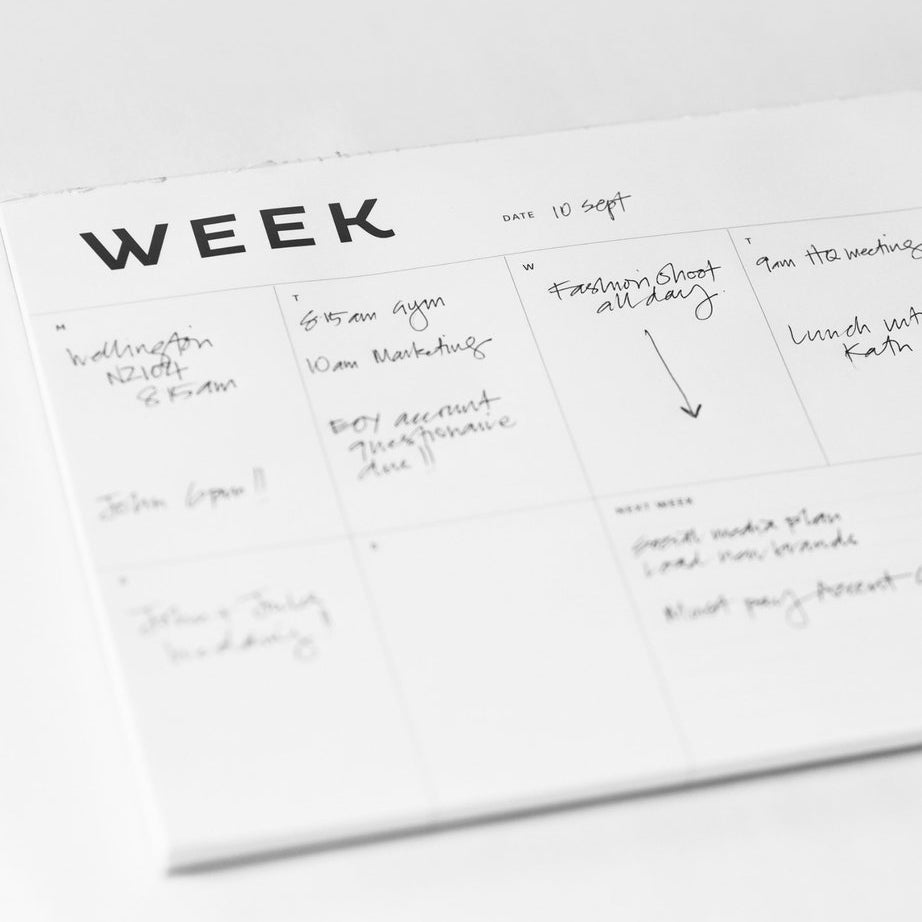 WEEK
DATE 10 Sept
M
Wellington
NZ104
8:15am
John 6pm!!
T
8:15am Gym
10am Marketing
EOY account
questionaire
due!!
W
Fashion Shoot
all day.
T
9am HQ meeting
Lunch
Kath
S
John & July
wedding!
S
NEXT WEEK
Social media plan
Load new brands
Must pay